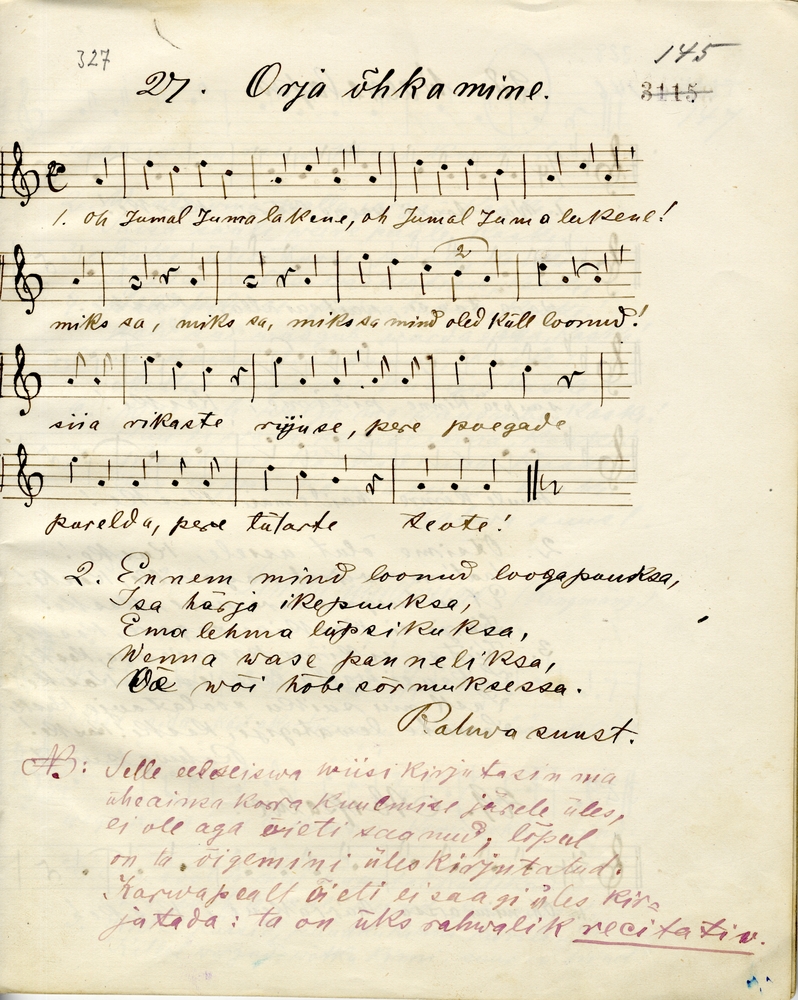 327
145
3115
27. Orja õhkamine.
1. oh Jumal Jumalakene, oh Jumal Jumalakene!
2
miks sa, miks sa, miks sa mind oled küll loonud!
siia rikaste riijuse, pere poegade
porelda, pere tütarte teote!
2. Ennem mind loonud loogapuuksa,
Isa härja ikepuuksa,
Ema lehma lüpsikuksa,
Wenna wase panneliksa,
Õe wõi hõbe sõrmuksessa.
Rahwa suust.
NB: Selle eelseiswa wiisi kirjutasin ma
üheainsa korra kuulmise järele üles,
ei ole aga õieti saanud, lõpul
on ta õigemini üles kirjutatud.
Karwapealt õieti ei saagi üles kir-
jutada: ta on üks rahwalik recitativ.